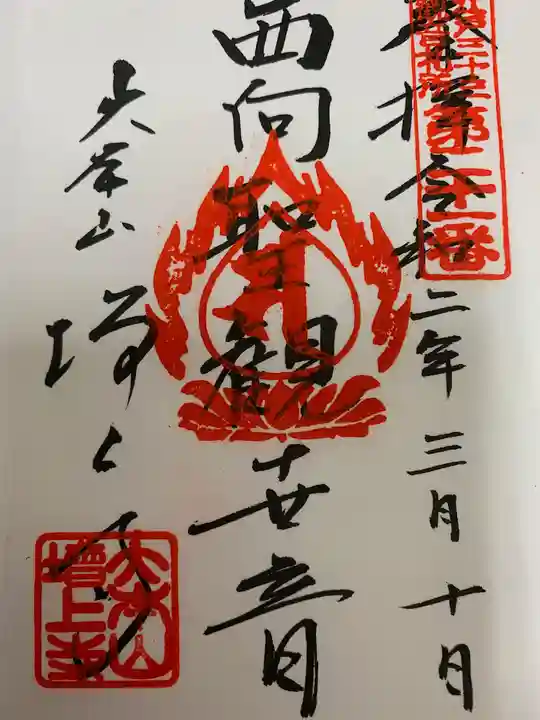 奉拝 令和二年三月十日
西向聖観世音
大本山 増上寺
第二十一番
大本山
増上寺